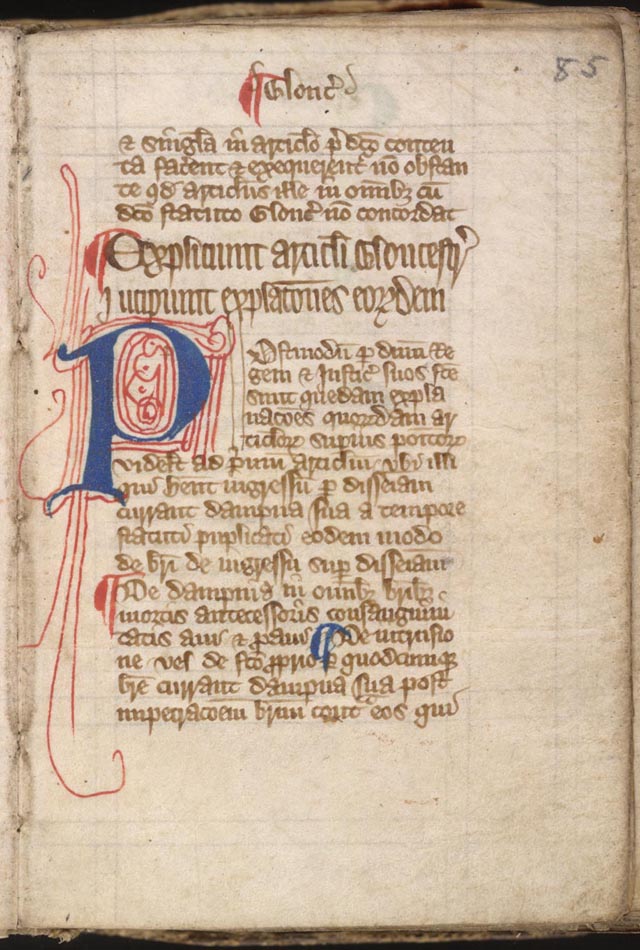 85
¶ Glouc̄
& singl̄a in articl̄o p̄dc̄o conten
ta facent & exequerent̄ nō obstan
te qđ articl̄us ille in om̄ibꝫ cū
dc̄o statuto Glouc̄ nō concordat
Expliciunt articl̄i Gloucestr̄
Incipiunt explac̄ones eoꝝdem
Postmodū ꝑ dn̄um Re
gem & Justic̄ suos fc̄e
sunt quedam expla
nac̄oēs quorūdam ar
ticl̄oꝝ supius poītoꝝ
videl̄t ad p̄mum articl̄m vbi illi
qui hēnt ingressū ꝑ disseiam
currant dampna sua a tempore
statuti puplicati eodem modo
de br̄i de ingressu suꝑ disseiām
¶ De dampnis in om̄ibꝫ bribꝫ
mortis antecessoris consanguini
tatis aui & ꝓaui ¶ De intrusio
ne vel de fc̄o ꝓprio ꝑ quodcumqꝫ
br̄e currant dampna sua post
impetrac̄oem br̄ium cont̄ eos qui